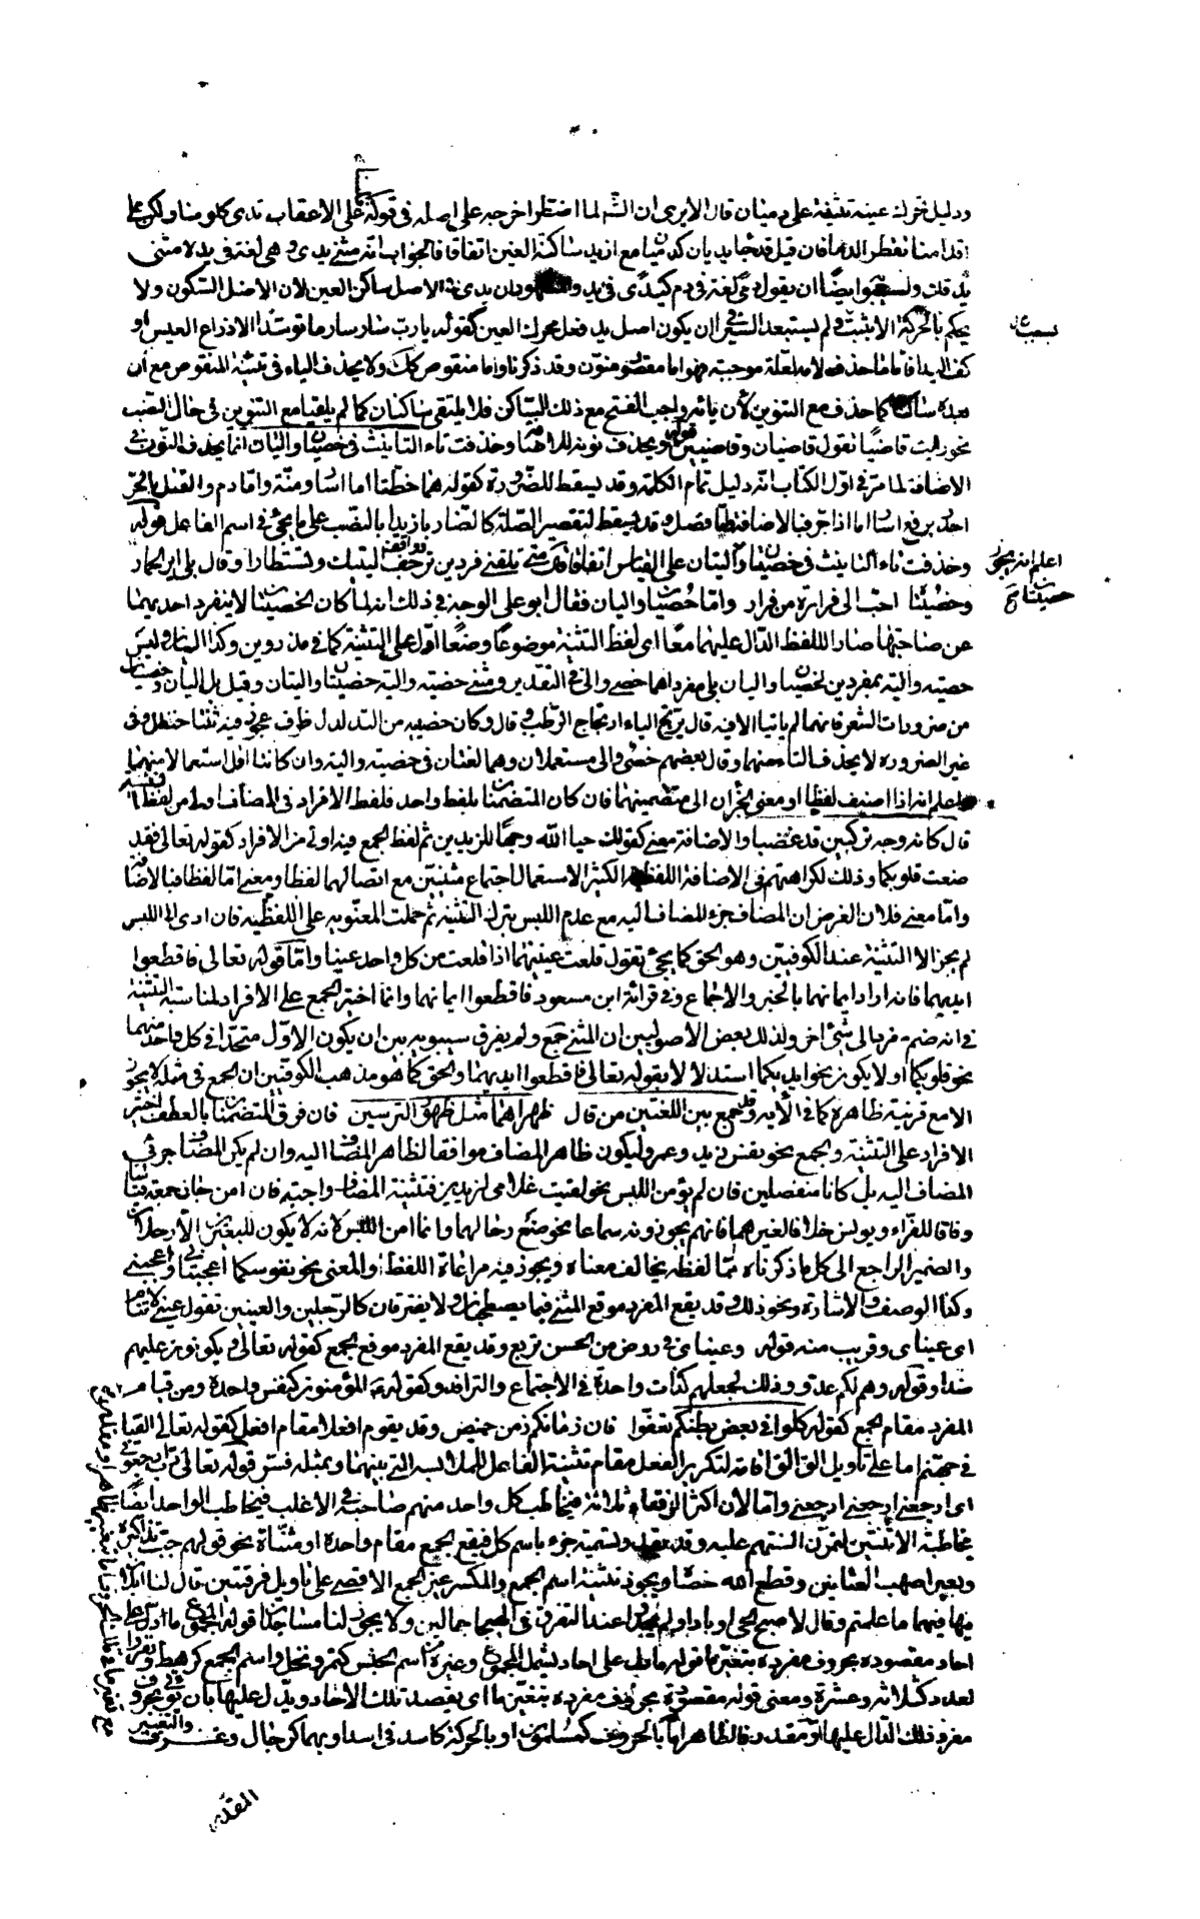 ودليل تحرك عينه تثنيته على دميان قال الا يرى ان الشاعر لما اضطر اخرجه على اصله في قوله فلسنا على الاعقاب تدمى كلومنا ولكن على
اقدامنا تقطر الدما فان قيل قد جاء يديان كدميان مع ان يد ساكنة العين اتفاقا فالجواب انه مثنى يدى وهى لغة في يد لا مثنى
يد قلت ولسيبويه ايضا ان يقول دمى لغة في دم كيدى في يد والمشهور ان يدى في الاصل ساكن العين لان الاصل السكون ولا
يحكم بالحركة الا بثبت ولم يستبعد السيرافي ان يكون اصل يد فعل محرك العين كقوله يا رب سار سار ما توسدا الا ذراع العيس او
كف اليدا فاما ما حذف لامه لعلة موجبة فهو اما مقصور منون وقد ذكرنا واما منقوص كذلك ولا يحذف الياء في تثنية المنقوص مع ان
بعده ساكنا كما حذف مع التنوين لأن ياءه واجب الفتح مع ذلك الساكن فلا يلتقى ساكنان كما لم يلتقيا مع التنوين في حال النصب
نحو رايت قاضيا تقول قاضيان وقاضيين قوله ويحذف نونه للاضافة وحذفت تاء التانيث في خصيان واليان انما يحذف النون في
الاضافة لما مر في اول الكتاب انه دليل تمام الكلمة وقد يسقط للضرورة كقوله هما خطتا اما اسار ومنة واما دم والقتل بالحر
اجدر برفع اسار اما اذا جر فبالاضافة وقد يسقط لتقصير الصلة كالضاربا زيدا بالنصب على ما يجئ في اسم الفاعل قوله
وحذفت تاء التانيث في خصيان واليان على القياس اتفاقا قال متى ما تلقنى فردين ترجف روانف اليتيك وتستطارا وقال بلى اير الحمار
وخصيتا احب الى فزارة من فزار واما خصيان واليان فقال ابو على الوجه في ذلك انه لما كان الخصيتان لا ينفرد احديهما
عن صاحبتها صار اللفظ الدال عليهما معا اى لفظ التثنية موضوعا وضعا اول على التثنية كما في مذروين وكذا اليان وليس
خصية والية بمفردين لخصيان واليان بل مفردهما خصى والى في التقدير ومثنى خصية والية خصيتان واليتان وقيل بل اليان وخصيان
من ضرورات الشعر فانهما لم ياتيا الا فيه قال يرتج الياه ارتجاج الوطب وقال وكأن خصييه من التدلدل ظرف عجوز فيه ثنتا حنظل وفى
غير الضرورة لا يحذف التاء منهما وقال بعضهم خصى والى مستعملان وهما لغتان في خصية والية وان كانتا اقل استعمالا منهما
واعلم انه اذا اضيف لفظا او معنى الجزآن الى متضمنيهما فان كان المتضمنان بلفظ واحد فلفظ الافراد في المضاف اولى من لفظ التثنية
قال كانه وجه تركيين قد غضبا والاضافة معنى كقولك حيا الله وجها للزيدين ثم لفظ الجمع فيه اولى من الافراد كقوله تعالى فقد
صغت قلوبكما وذلك لكراهتهم في الاضافة اللفظية الكثيرة الاستعمال اجتماع مثنيين مع اتصالهما لفظا ومعنى اما لفظا فبالاضافة
واما معنى فلان الغرض ان المضاف جزء للمضاف اليه مع عدم اللبس بترك التثنية ثم حملت المعنوية على اللفظية فان ادى الى اللبس
لم يجز الا التثنية عند الكوفيين وهو الحق كما يجئ تقول قلعت عينيهما اذا قلعت من كل واحد عينا واما قوله تعالى فاقطعوا
ايديهما فانه اراد ايمانهما بالخبر والاجماع وفى قراءة ابن مسعود فاقطعوا ايمانهما وانما اختير الجمع على الافراد لمناسبة التثنية
في انه ضم مفرد الى شئ اخر ولذلك قال بعض الاصوليين ان المثنى جمع ولم يفرق سيبويه بين ان يكون الاول متحدا في كل واحد منهما
نحو قلوبكما او لا يكون نحو ايديكما استدلالا بقوله تعالى فاقطعوا ايديهما والحق كما هو مذهب الكوفيين ان الجمع في مثله لا يجوز
الا مع قرينة ظاهرة كما في الآية وقد جمع بين اللغتين من قال ظهراهما مثل ظهور الترسين فان فرق المتضمنان بالعطف اختير
الافراد على التثنية والجمع نحو نفس زيد وعمرو ليكون ظاهر المضاف موافقا لظاهر المضاف اليه وان لم يكن المضاف جزئى
المضاف اليه بل كانا منفصلين فان لم يؤمن اللبس نحو لقيت غلامى الزيدين فتثنية المضاف واجبة فان امن جاز جمعه قياسا
وفاقا للفراء ويونس خلافا لغيرهما فانهم يجوزونه سماعا نحو ضع رحالهما وانما امن اللبس لانه لا يكون للبعيرين الا رحلان
والضمير الراجع الى كل ما ذكرناه مما لفظه يخالف معناه ويجوز فيه مراعاة اللفظ والمعنى نحو نفوسكما اعجبتانى واعجبتنى
وكذا الوصف والاشارة ونحو ذلك وقد يقع المفرد موقع المثنى فيما يصطحبان ولا يفترقان كالرجلين والعينين تقول عينى لا تنام
اى عيناى وقريب منه قوله وعيناى في روض من الحسن ترتع وقد يقع المفرد موقع الجمع كقوله تعالى ويكونون عليهم
ضدا وقوله وهم لكم عدو وذلك لجعلهم كذات واحدة في الاجتماع والترافد وكقوله المؤمنون كنفس واحدة ومن قيام
المفرد مقام الجمع كقوله كلوا في بعض بطنكم تعفوا فان زمانكم زمن خميص وقد يقوم افعلا مقام افعل كقوله تعالى القيا
في جهنم اما على تاويل الق الق اقامة لتكرير الفعل مقام تثنية الفاعل للملابسة التى بينهما وبمثله فسر قوله تعالى رب ارجعون
اى ارجعنى ارجعنى ارجعنى واما لان اكثر الرفقاء ثلاثة فيخاطب كل واحد منهم صاحبيه في الاغلب فيخاطب الواحد ايضا
مخاطبة الاثنين لتمرن السنتهم عليه وقد تسمية جزء باسم كل فيقع الجمع مقام واحده او مثناه نحو قولهم جب مذاكيره
وبعير اصهب العثانين وقطع الله خصاه ويجوز تثنية اسم الجمع والمكسر غير الجمع الاقصى على تاويل فرقتين قال لنا ابلان
فيهما ما علمتم وقال لاصبح الحى اوبادا ولم يجدوا عند التفرق في الهيجا جمالين ولا يجوز لنا مساجدان قوله المجموع ما دل على
احاد مقصودة بحروف مفرده بتغير ما قوله ما دل على احاد يشمل المجموع وغيره من اسم الجنس كتمر ونخل واسم الجمع كرهط ونفر
لعدد كثلاثة وعشرة ومعنى قوله مقصودة بحروف مفرده بتغير ما اى يقصد تلك الاحاد ويدل عليها بان يؤتى بحروف
مفرد ذلك الدال عليها مقدر فالظاهر اما بالحروف كمسلمون او بالحركة كاسد في اسد او بهما كرجال وغرف والتغيير
اعلم انه يجوز
خصيتان
المقدر